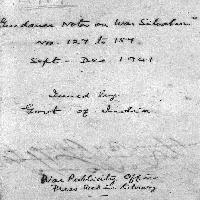 "Guidance Notes on War Situation"
No. 127 to 157
Sept - Dec 1941
Issued by
Govt of India
War Publicity Office
Press Road